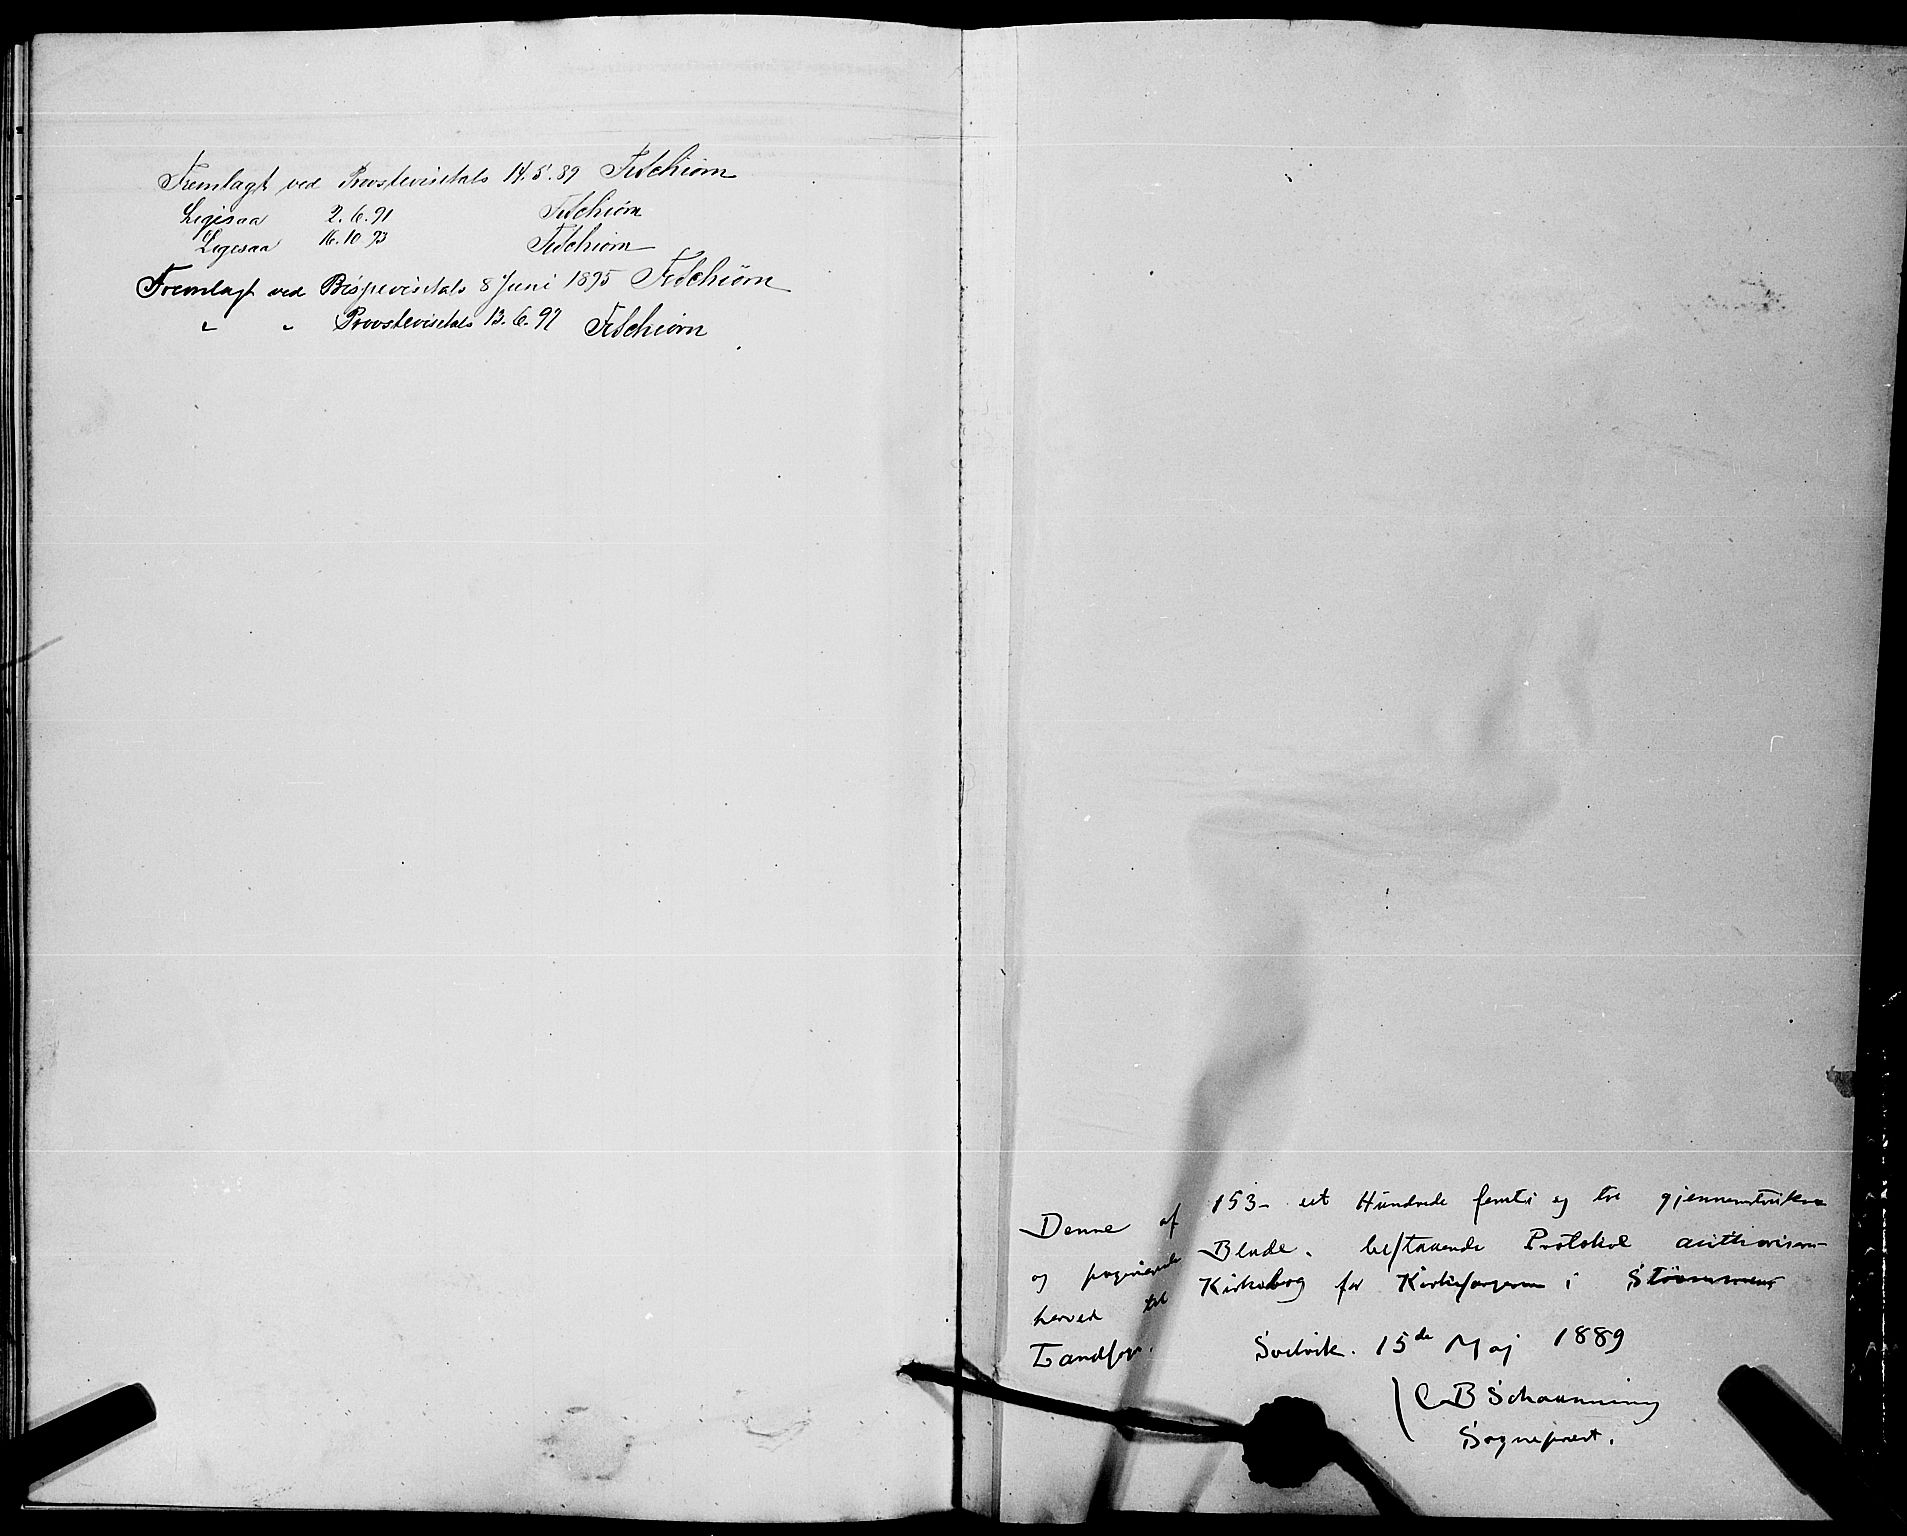 Fremlagt ved Provstevisitats 14.5.89 FrSchiørn
Ligesaa 2.6.91 FrSchiørn
Ligesaa 16.10 93 FrSchiørn
Fremlagt ved Bispevisitats 8 Juni 1895 FrSchiørn
" " Provstevisitats 13.6.97 FrSchiørn
Denne af 153 - et Hundrede femti og tre gjennemtrukne
og paginerede Blade. bestaaende Protokol authoriseres
herved til Kirkebog for Kirkesangeren i Strømmens
Landsogn.
Svelvik. 15de Maj 1889
C B Schaanning
Sogneprest.